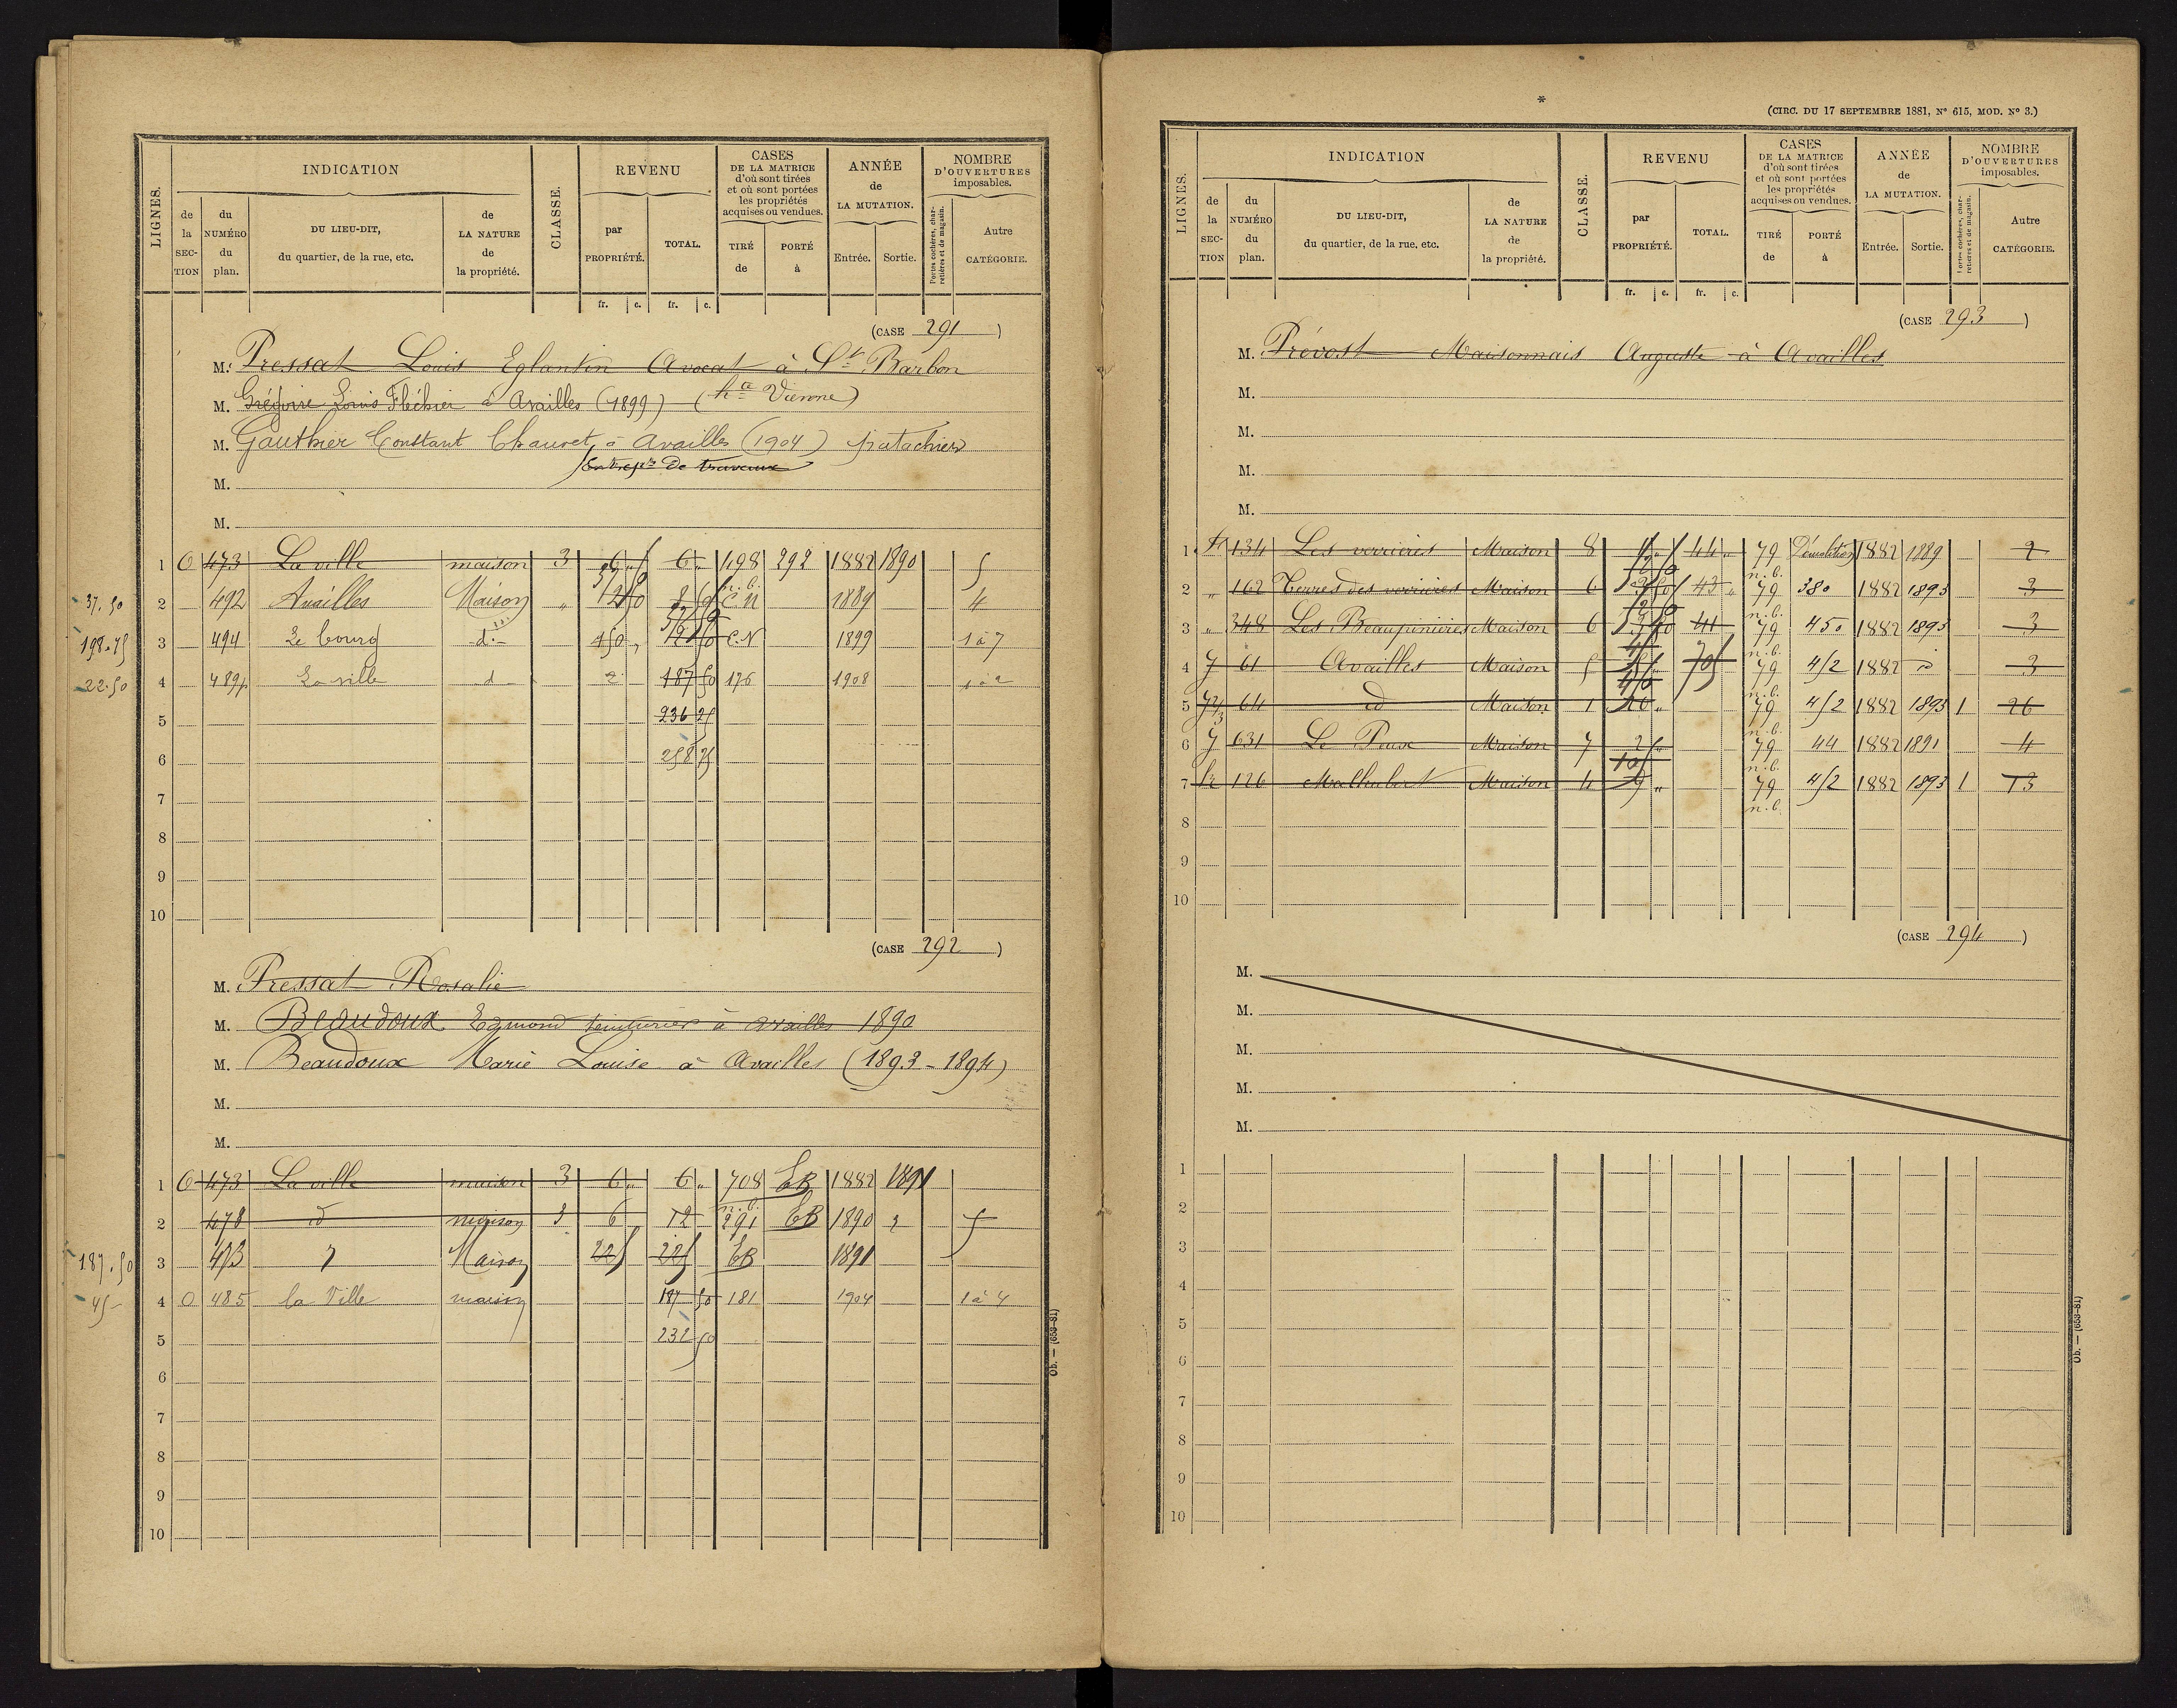 LIGNES. INDICATION CLASSE. REVENU CASES DE LA MATRICE d'où sont tirées et où sont portées les propriétés acquises ou vendues. ANNÉE de LA MUTATION. NOMBRE D'OUVERTURES imposables.
de la SECTION du NUMÉRO du plan. DU LIEU-DIT, du quartier, de la rue, etc. de LA NATURE de la propriété. par PROPRIÉTÉ. TOTAL. TIRÉ de PORTÉ à Entrée. Sortie. Portes cochères, charretières et de magasin. Autre CATÉGORIE.
fr. c. fr. c.
(CASE 291)
M. Pressat Louis Eglantin Avocat à St Barbon
M. Grégoire Louis Fléchier à Availles (1899) (hte Vienne)
M. Gauthier Constant Chauvet à Availles (1904) patachier
Entrepr de travaux
M.
M.
1 O 473 La ville maison 3 6 „ 6 „ 498 292 1882 1890 5
37.50 2 492 Availles Maison „ C.N 1889 4
198.75 3 494 Le bourg d° 150 „ C.N 1899 1 à 7
22.50 4 489 La ville d 187 50 176 1908 1 à 2
5 236 25
6 258 75
7
8
9
10
(CASE 292)
M. Pressat Rosalie
M. Beaudoux Edmond teinturier à Availles 1890
M. Beaudoux Marie Louise à Availles (1893-1894)
M.
M.
1 O 473 La ville maison 3 6 „ 6 „ 708 CB 1882 1891
n.b.
2 478 d maison 3 6 12 291 CB 1890 5
187.50 3 473 Maison 225 225 CB 1891
45- 4 O 485 la Ville maison 187 50 181 1904 1 à 4
5 232 50
6
7
8
9
10
Ob. — (653-81)
(CIRC. DU 17 SEPTEMBRE 1881, N° 615, MOD. N° 3.)
LIGNES. INDICATION CLASSE. REVENU CASES DE LA MATRICE d'où sont tirées et où sont portées les propriétés acquises ou vendues. ANNÉE de LA MUTATION. NOMBRE D'OUVERTURES imposables.
de la SECTION du NUMÉRO du plan. DU LIEU-DIT, du quartier, de la rue, etc. de LA NATURE de la propriété. par PROPRIÉTÉ. TOTAL. TIRÉ de PORTÉ à Entrée. Sortie. Portes cochères, charretières et de magasin. Autre CATÉGORIE.
fr. c. fr. c.
(CASE 293)
M. Prévost Maisonnais Auguste à Availles
M.
M.
M.
M.
1 134 Les verrières Maison 8 44 „ 79 Démolition 1882 1889 2
n.b.
2 „ 162 Terres des verrières Maison 6 43 „ 79 380 1882 1893 3
n.b.
3 „ 348 Les Beaupinières Maison 6 41 79 450 1882 1893 3
n.b.
4 61 Availles Maison 5 705 79 452 1882 d 3
n.b.
5 64 id Maison 1 79 452 1882 1893 1 26
n.b.
6 631 Le Peux Maison 7 79 44 1882 1891 4
n.b.
7 126 Maison 4 79 452 1882 1893 1 13
n.b.
8
9
10
(CASE 294)
M.
M.
M.
M.
M.
1
2
3
4
5
6
7
8
9
10
Ob. — (653-81)